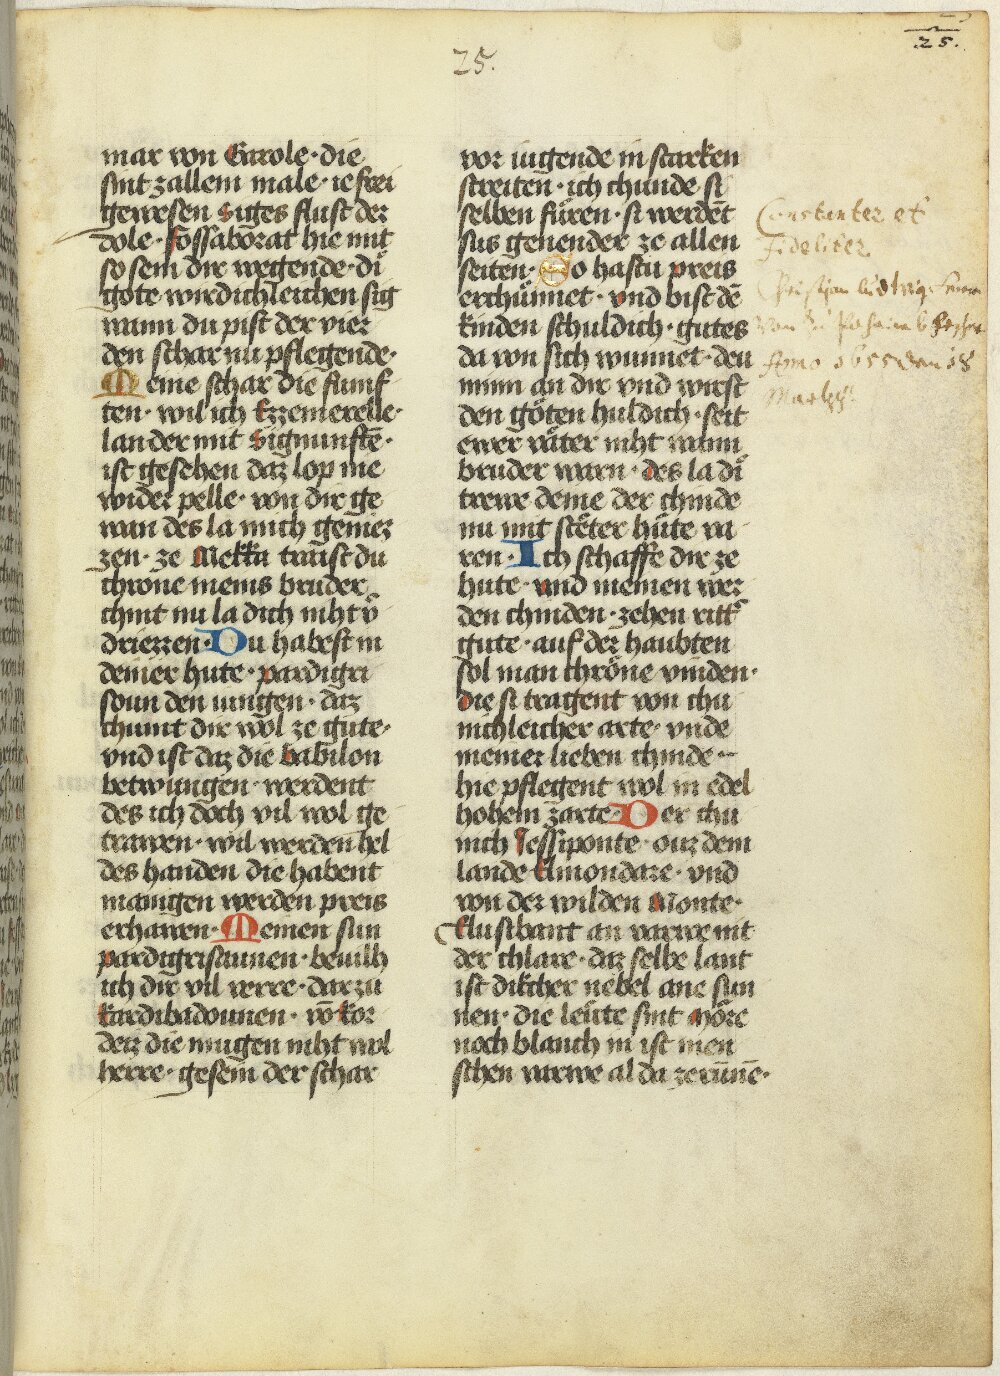 25.
25.
mar von Garole · die
sint zallem male · ie frei
gewesen Siges flust der
dole · fossaborat hie mit
so sein dir wegende · di
gote wirdichleichen sig
wann du pist der vier
den schar nu pflegende ·
Meine schar die funf
ten · wil ich Ezzemereile ·
lander mit Sigmunste ·
ist gesehen daz lop nie
wider pelle · von dir ge
wan des la mich geniez
zen · ze Mekka traist du
chrone meins bruder
chint nu la dich niht v̄
driezzen · Du habest in
deiner hute · pardigri
soun den iungen · daz
chumt dir wol ze gute ·
vnd ist daz die babilon
betwungen · werdent
des ich doch vil wol ge
trawen · wil werden hel
des handen die habent
manigen werden preis
erhawen · Meinen sun
pardigrisaunen · beuilh
ich dir vil verre · dar zu
kardibadounen · vō kor
detz die mugen niht wol
herre · gesein der schar
vor iugende in starken
streiten · ich chunde si
selben fûren · si werdēt
sus genender ze allen
seiten · So hastu preis
erchûnnet · vnd bist dē
kinden schuldich · gutes
da von sich wunnet · den
minn an dir vnd wirst
den gôten huldich · seit
ewer väter niht wann
bruder warn · des la dī
trewe deine der chinde
nu mit stêter hûte va
ren · Ich schaffe dir ze
hute · vnd meinen wer
den chinden · zehen ritt
gute · auf der haubten
sol man chrône vinden ·
die si tragent von chu
nichleicher arte · vnde
meiner lieben chinde
hie pflegent wol in edel
hohem zarte · Der chu
nich Jessiponte · ouz dem
lande Almondare · vnd
von der wilden Monte ·
Clusthant an varwe nit
der chlare · daz selbe lant
ist dikcher nebel ane sun
nen · die leûte sint môre
noch blanch in ist men
schen varwe al da zerunne ·
Constanter et
Fideliter
Christian Ludwig
von
Anno 1655 den 18
Martij